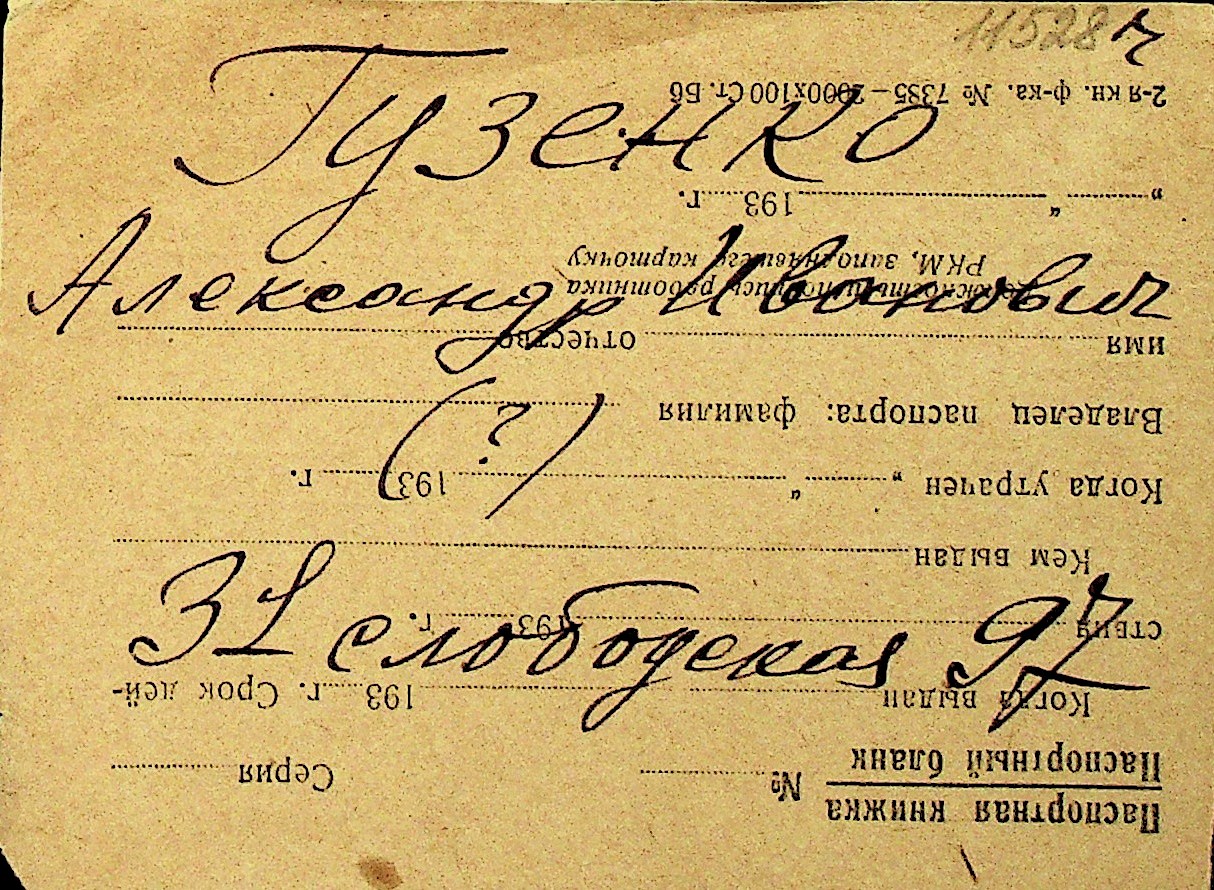 11528
Гузенко
Александр Иванович
(?)
31 слободская 97
Паспортная книжка
Паспортный бланк
№ Серия
Когда выдан 193 г. Срок дей-
ствия 193 г.
Кем выдан
Когда утрачен „ “ 193 г.
Владелец паспорта: фамилия
имя отчество
Должность и подпись работника
РКМ, заполнявшего карточку
„ “ 193 г.
2-я кн. ф-ка. № 7385—2000х100 Ст. Бб